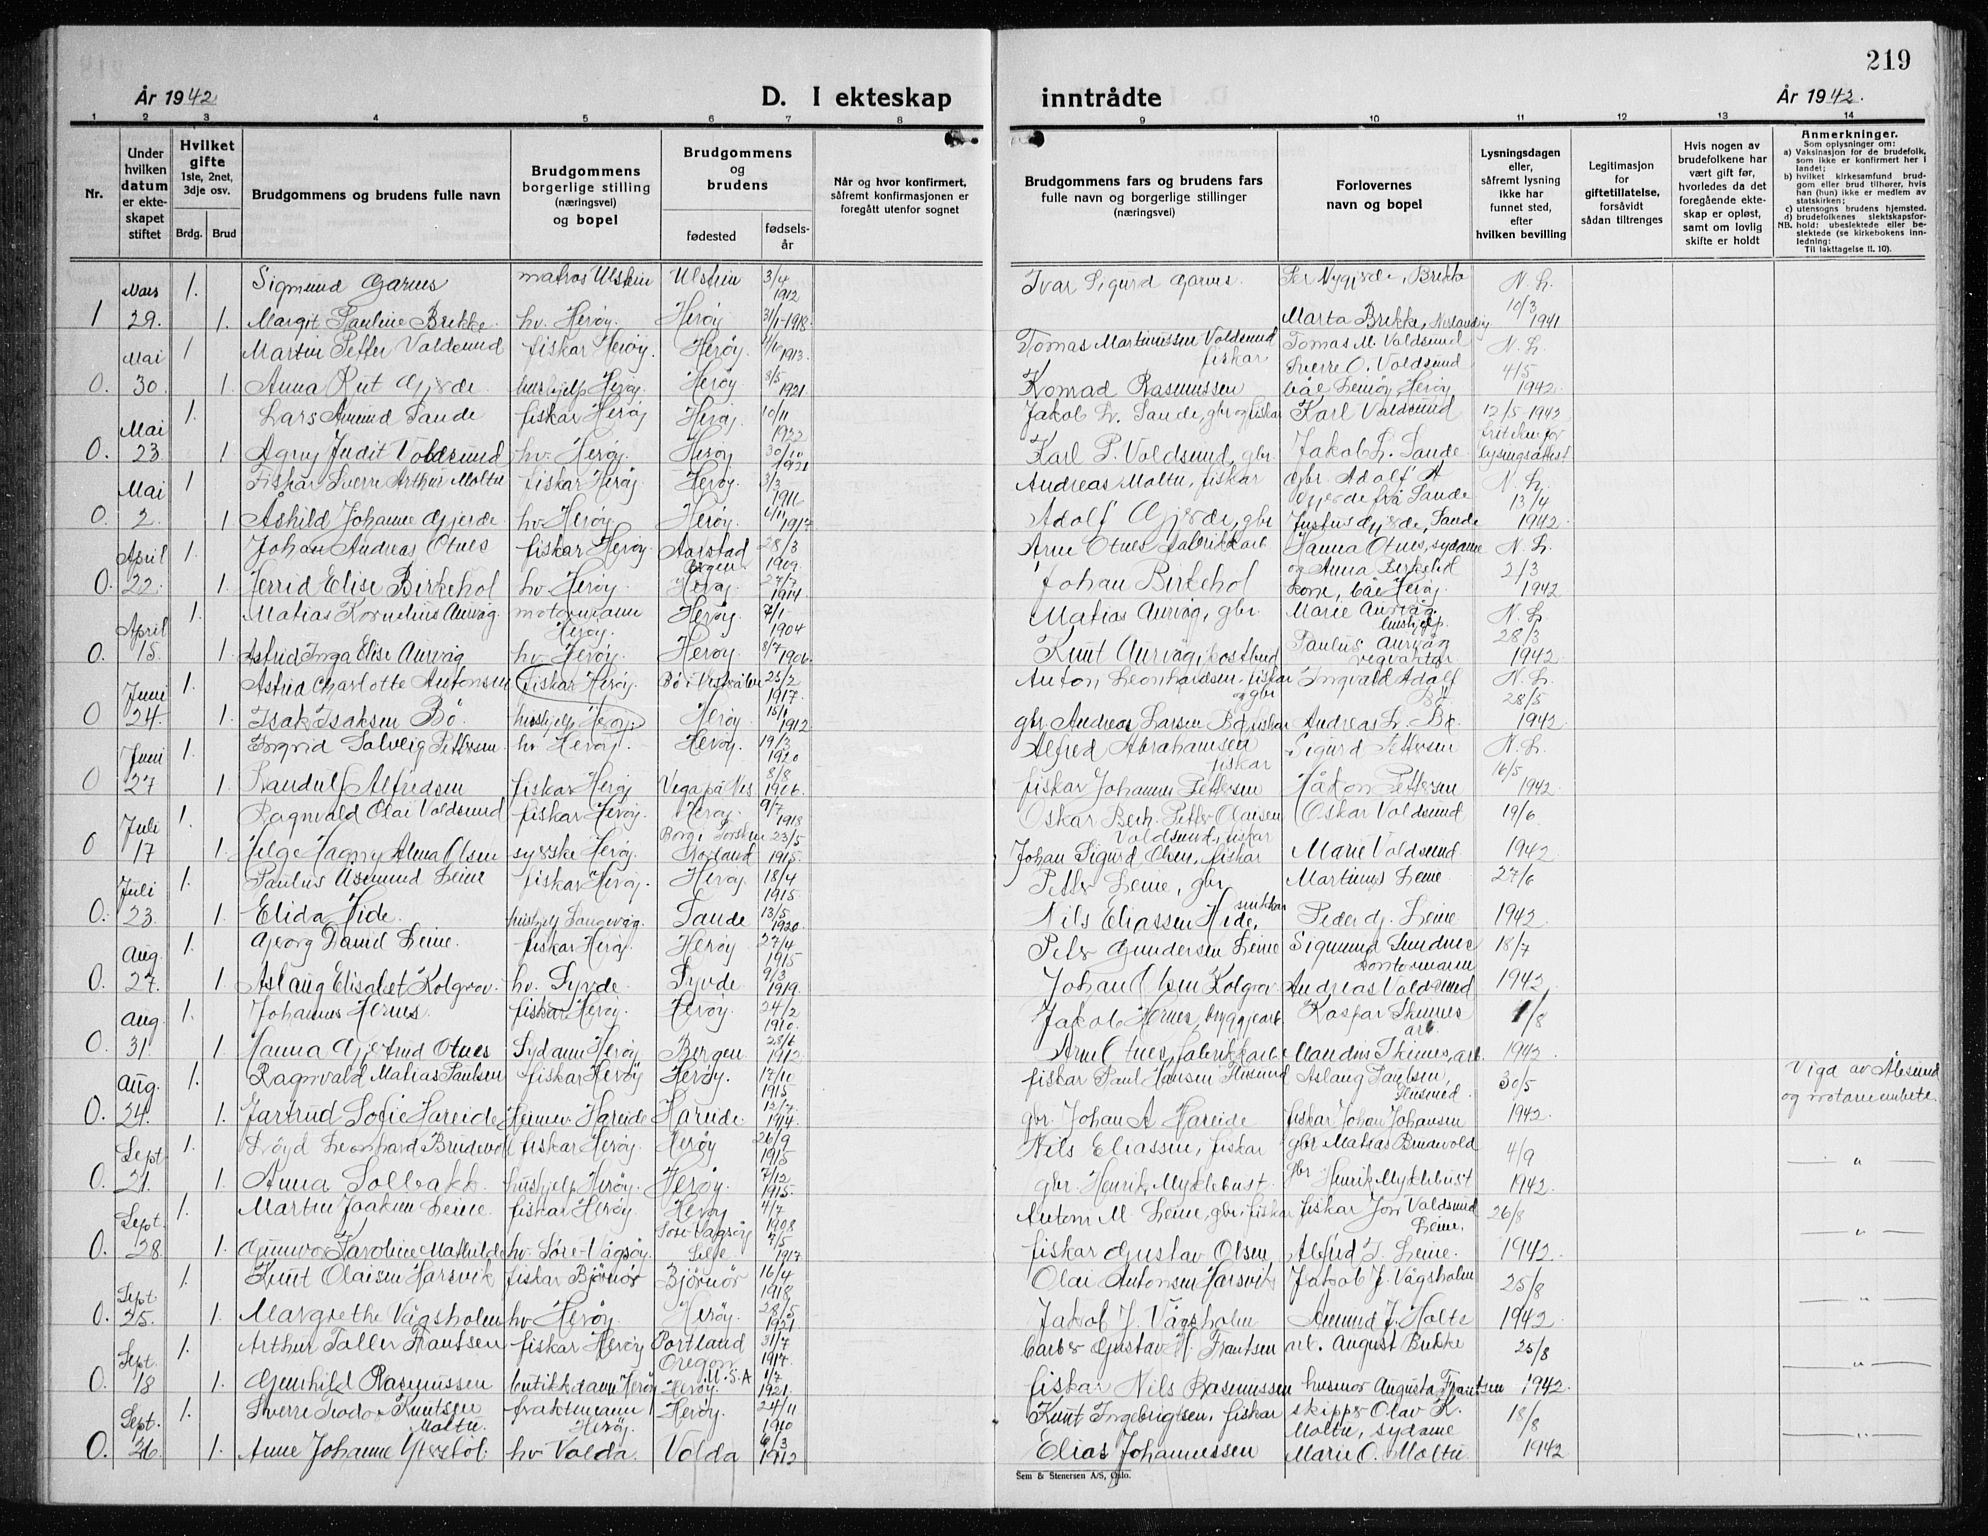 219
År 1942
D. I ekteskap
inntrådte
År 1942.
1 2 3 4 5 6 7 8 9 10 11 12 13 14
Nr.
Under hvilken datum er ekteskapet stiftet
Hvilket gifte
1ste, 2net, 3dje osv.
Brdg. Brud
Brudgommens og brudens fulle navn
Brudgommens borgerlige stilling (næringsvei) og bopel
Brudgommens og brudens
fødested
fødselsår
Når og hvor konfirmert, såfremt konfirmasjonen er foregått utenfor sognet
Brudgommens fars og brudens fars fulle navn og borgerlige stillinger (næringsvei)
Forlovernes navn og bopel
Lysningsdagen eller, såfremt lysning ikke har funnet sted, efter hvilken bevilling
Legitimasjon for giftetillatelse, forsåvidt sådan tiltrenges
Hvis nogen av brudefolkene har vært gift før, hvorledes da det foregående ekteskap er opløst, samt om lovlig skifte er holdt
Anmerkninger.
Som oplysninger om:
a) Vaksinasjon for de brudefolk, som ikke er konfirmert her i landet;
b) hvilket kirkesamfund brudgom eller brud tilhører, hvis han (hun) ikke er medlem av statskirken;
c) utensogns brudens hjemsted.
d) brudefolkenes slektskapsforhold: ubeslektede eller beslektede (se kirkebokens innledning:
NB. Til Iakttagelse II. 10).
Mars 1. Sigmund Garnes matros Ulstein Ulstein 3/4 1912 Ivar Sigurd Garnes. Brekke N. L.
1 29. 1. Margit Pauline Brekke. hv. Herøy. Herøy 31/1-1918. Marta Brekke, 10/3 1941
Mai 1 Martin Petter Voldsund fiskar Herøy. Herøy. 1913. Tomas Martinussen Voldsund fiskar Tomas M. Voldsund N. L.
0. 30. 1 Anna Rut Gjerde. hushjelp Herøy. Herøy. 8/5 1921 Konrad Rasmussen Sverre O. Voldsund Leinøy, Herøy 4/5 1942.
Mai 1. Lars Amund Sande fiskar Herøy Herøy. 10/11 1922 Jakob L. Sande, gbr og fiskar Karl Voldsund 12/5 1942
0. 23. 1 Agny Judit Voldsund hv. Herøy. Herøy 30/10 1921 Karl P. Voldsund, gbr. Jakob L. Sande. lysingsattest
Mai 1 Fiskar Sverre Arthur Moltu fiskar Herøy Herøy. 3/3 1916 Andreas Moltu, fiskar gbr. Adolf A Gjerde frå Sande N. L. 13/4
0. 2. 1 Åshild Johanne Gjerde hv. Herøy. Herøy. 6/11 1917 Adolf Gjerde, gbr Justus Gjerde, Sande 1942.
April 1. Johan Andreas Otnes fiskar Herøy. Aarstad Bergen 28/3 1909. Arne Otnes fabrikkarb. Hanna Otnes, sydame N. L.
0. 22. 1. Herrid Elise Birkehol hv. Herøy Herøy 27/7 1914 Johan Birkehol og Anna Birkehol kone, Herøy. 2/3 1942
April 1. Matias Kornelius Aurvåg. motormann Herøy. Herøy. 7/1 1904 Matias Aurvåg, gbr. Marie Aurvåg hushjelp N. L.
0. 15. 1. Astrid Inga Elise Aurvåg hv. Herøy. Herøy. 8/7 1906. Knut Aurvåg, postbud Paulus Aurvåg vegvaktar 28/3 1942.
Juni 1. Astrid Charlotte Antonsen fiskar Herøy. Bø i Vesterålen 25/2 1917. Anton Leonhardsen, fiskar og gbr Ingvald Adolf Bø N. L. 28/5
0 24. 1. Isak Isaksen Bø. hushjelp Herøy. Herøy 15/1 1912 gbr. Andreas Larsen Bø, fiskar Andreas L. Bø. 1942
Juni 1. Ingrid Solveig Pettersen hv Herøy. Herøy. 19/3 1920 Alfred Abrahamsen fiskar Sigurd Pettersen N. L.
0 27 1. Randulf Alfredsen fiskar Herøy Vega på Ves 8/8 1916. fiskar Johannes Pettersen Håkon Pettersen 16/5 1942.
Juli 1. Ragnvald Olai Voldsund fiskar Herøy. Herøy 9/7 1918 Oskar Petter Olaisen Voldsund, fiskar Oskar Voldsund 19/6
0 17 1. Helge Hagny Alma Olsen syerske Herøy. 23/5 1915. Johan Sigurd Olsen, fiskar Marie Voldsund. 1942.
Juli 1. Paulus Asmund Leine fiskar Herøy. Herøy. 18/4 1915 Petter Leine, gbr Martinus Leine. 27/6
0. 23. 1. Elida Hide. hushjelp Langevåg. Sande 13/5 1920. Nils Eliassen Hide, snikkar Peder G. Leine. 1942
Aug. 1. Georg David Leine. fiskar Herøy Herøy 27/4 1915 Peter Gundersen Leine Sigmund Sundnes kontormann 18/7
0. 27. 1. Aslaug Elisabet Kolgrov. hv. Syvde. Syvde 9/3 1919. Johan Olsen Kolgrov Andreas Voldsund 1942
Aug. 1. Johannes Hernes. fiskar Herøy. Herøy. 24/2 1910. Jakob Hernes, bryggjearb. Kaspar arb 1/8
0. 31. 1. Hanna Gjertrud Otnes Sydame Herøy. Bergen. 28/6 1912 Arne Otnes, fabrikkarb. arb. 1942
Aug. 1. Ragnvald Matias Paulsen fiskar Herøy Herøy. 17/10 1915 fiskar Paul Hansen Husund Aslaug Paulsen, 30/5 Vigd av Ålesund
0. 24. 1. Gjartrud Sofie Hareide Heimev. Hareide Hareide. 12/7 1914. gbr. Johan A Hareide fiskar Johan Johansen 1942. og notarembete.
Sept 1. Leonhard Brudevoll fiskar Herøy. Herøy 26/9 1915 Nils Eliassen, fiskar gbr Matias 4/9 — " —
0. 21. 1. Anna Solbakk. hushjelp Herøy. Herøy. 7/12 1915. gbr. Henrik Myklebust. gbr Henrik Myklebust 1942.
Sept. 1. Martin Joakim Leine. fiskar Herøy. Herøy 4/7 1908 Antom M Leine, gbr. fiskar fiskar Jon Voldsund Leine. 26/8 — " —
0. 28. 1. Gunvor Karoline Mathilde hv. Søre-Vågsøy. Søre Vågsøy 7/5 1917 fiskar Gustav Olsen Alfred J. Leine. 1942.
Sept 1. Knut Olaisen Harsvik fiskar Bjørnør Bjørnør 16/4 1918 Olai Antonsen Harsvik Jakob J. Vågsholm 25/8 — " —
0. 25. 1. Margrethe Vågsholm hv Herøy. Herøy. 28/5 1921 Jakob J. Vågsholm Amund J. Moltu 1942
Sept 1. Arthur Toller Frantsen fiskar Herøy Portland Oregon. U.S.A 31/7 1917. Gustav H. Frantsen arb. August Brekke 25/8 — " —
0. 18 1. Gunhild Rasmussen butikkdame Herøy Herøy. 1/7 1921. fiskar Nils Rasmussen husmor Augusta Frantsen 1942.
Sept. 1. Sverre Teodor Knutsen Moltu. fraktemann Herøy. Herøy. 24/11 1910 Knut Ingebrigtsen. fiskar skipper Olav K. Moltu, sydame 18/8 — " —
0. 26. 1. Anne Johanne Ytrestøl. hv Volda. Volda 9/3 1912 Elias Johannessen Marie O. Moltu 1942
Sem & Stenersen A/S, Oslo.